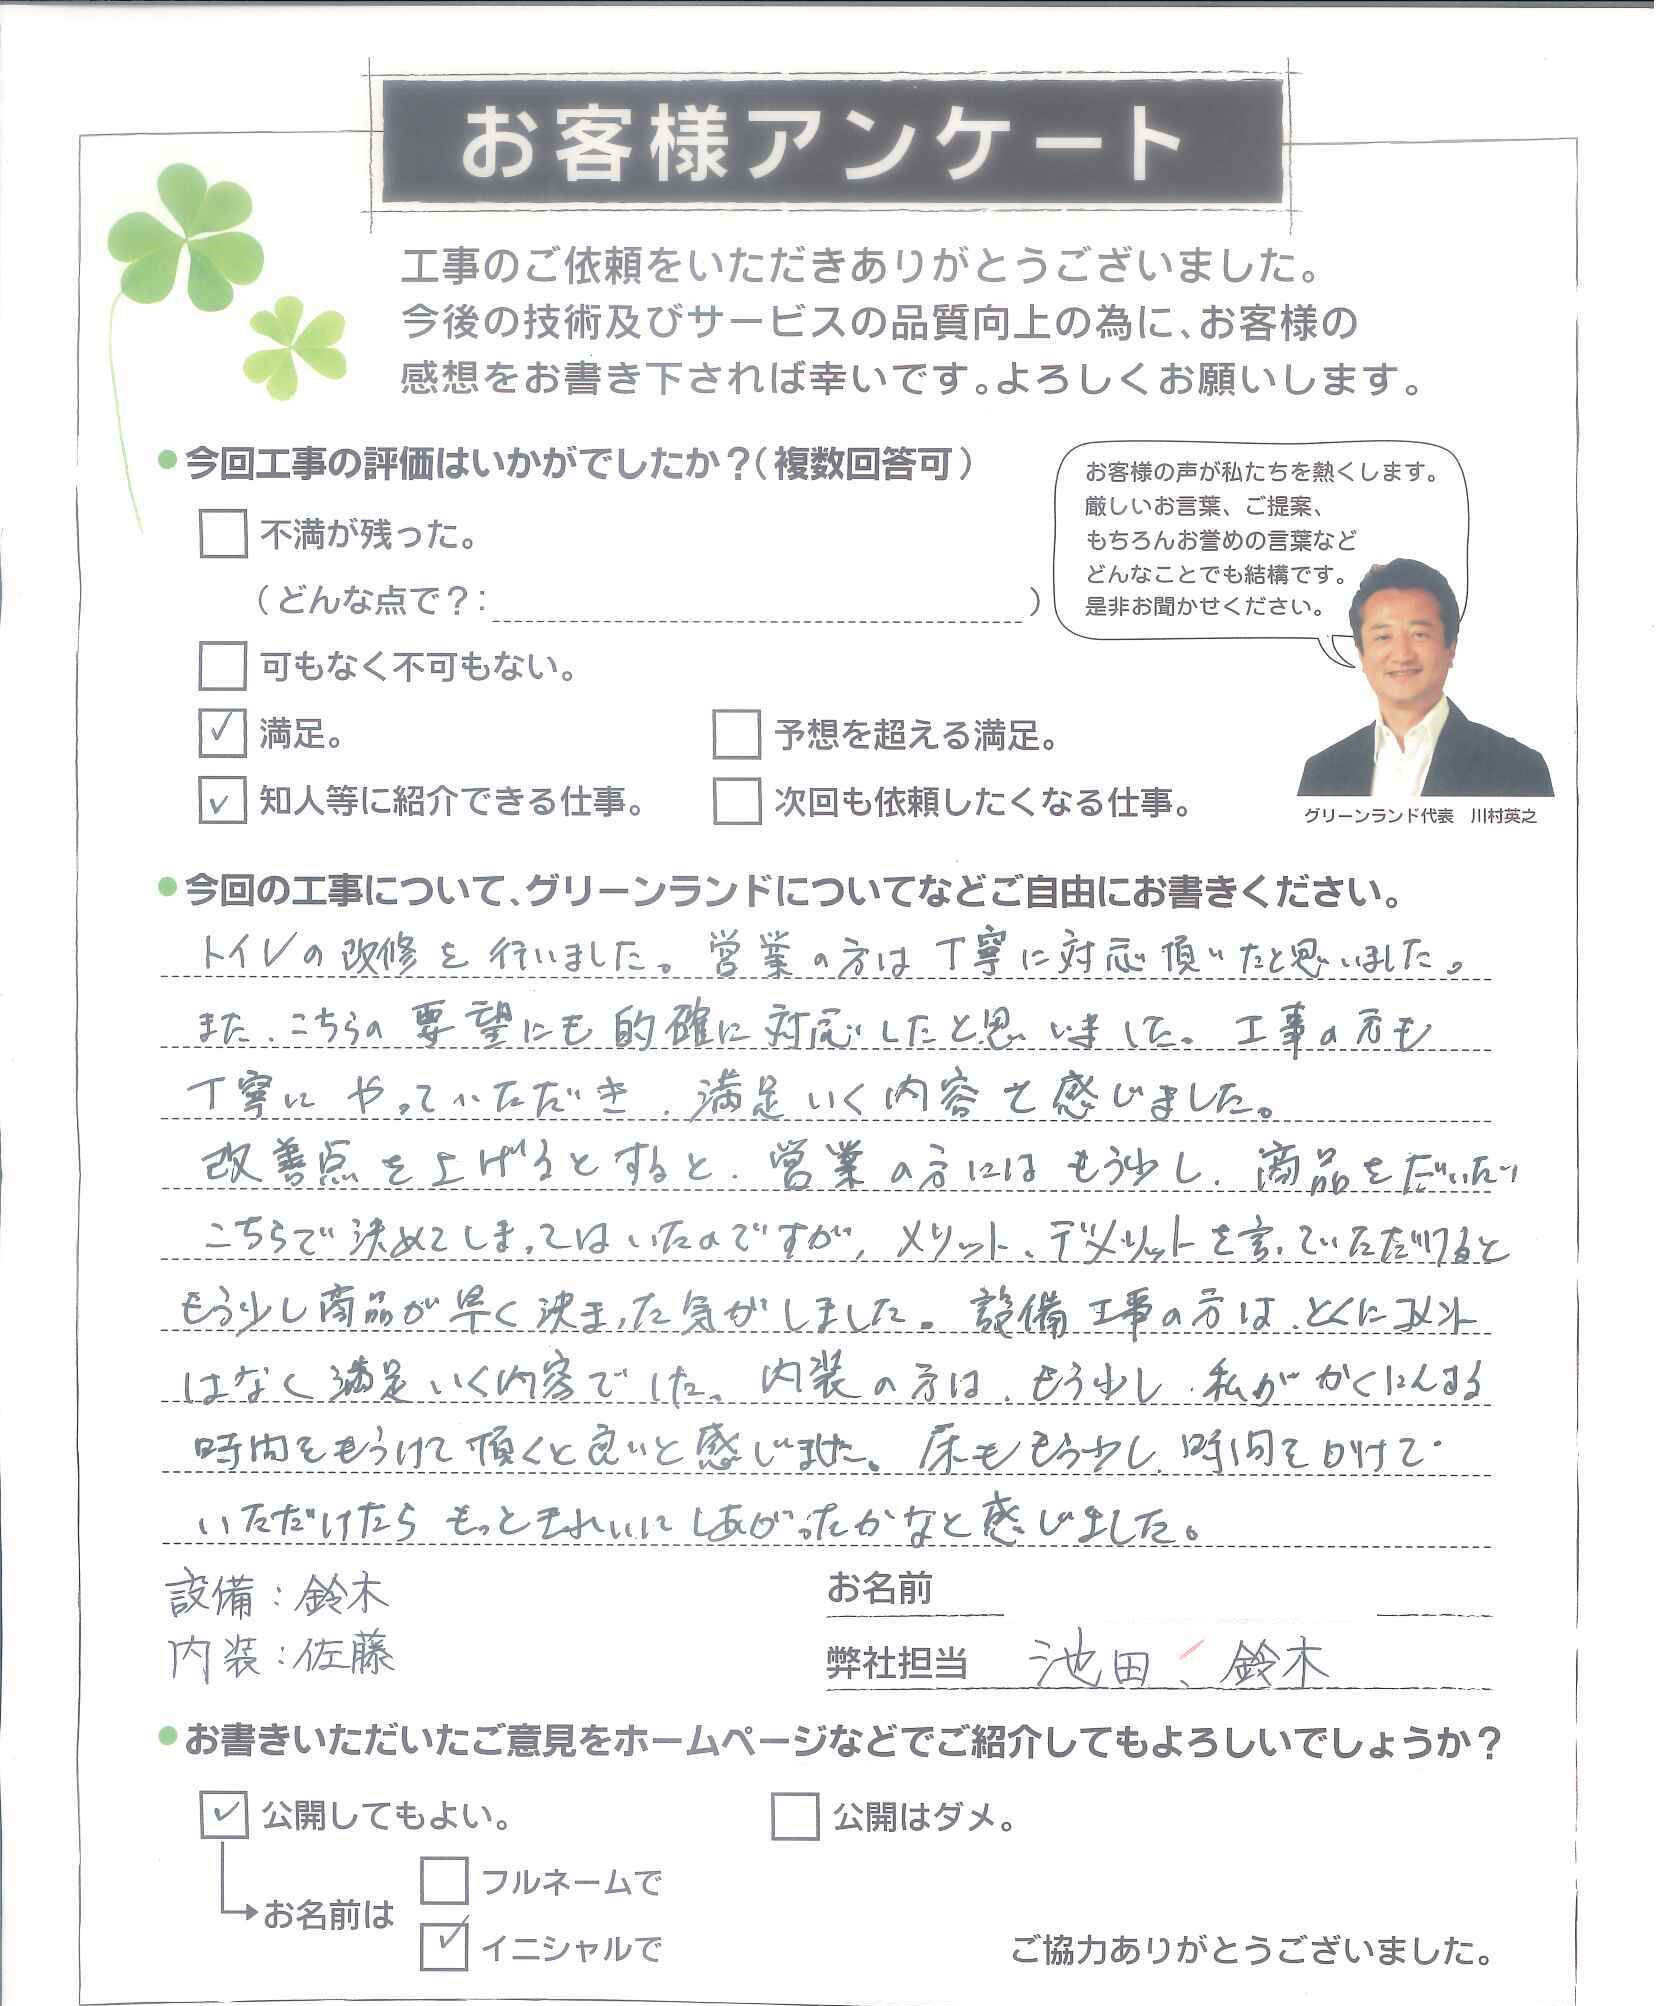 お客様アンケート
工事のご依頼をいただきありがとうございました。
今後の技術及びサービスの品質向上の為に、お客様の
感想をお書き下されば幸いです。よろしくお願いします。
●今回工事の評価はいかがでしたか？（複数回答可）
不満が残った。
（どんな点で？：　）
可もなく不可もない。
✓ 満足。
予想を超える満足。
✓ 知人等に紹介できる仕事。
次回も依頼したくなる仕事。
お客様の声が私たちを熱くします。
厳しいお言葉、ご提案、
もちろんお誉めの言葉など
どんなことでも結構です。
是非お聞かせください。
グリーンランド代表　川村英之
●今回の工事について、グリーンランドについてなどご自由にお書きください。
トイレの改修を行いました。営業の方は丁寧に対応頂いたと思いました。
また、こちらの要望にも的確に対応したと思いました。工事の方も
丁寧にやっていただき、満足いく内容で感じました。
改善点を上げるとすると、営業の方にはもう少し、商品をだいたい
こちらで決めてしまってはいたのですが、メリット、デメリットを言っていただけると
もう少し商品が早く決まった気がしました。設備工事の方は、とくにコメント
はなく満足いく内容でした。内装の方は、もう少し、私がかくにんする
時間をもうけて頂くと良いと感じました。床ももう少し、時間をかけて
いただけたらもっときれいにしあがったかなと感じました。
設備：鈴木
内装：佐藤
お名前
弊社担当 池田、鈴木
●お書きいただいたご意見をホームページなどでご紹介してもよろしいでしょうか？
✓ 公開してもよい。
公開はダメ。
お名前は
フルネームで
✓ イニシャルで
ご協力ありがとうございました。